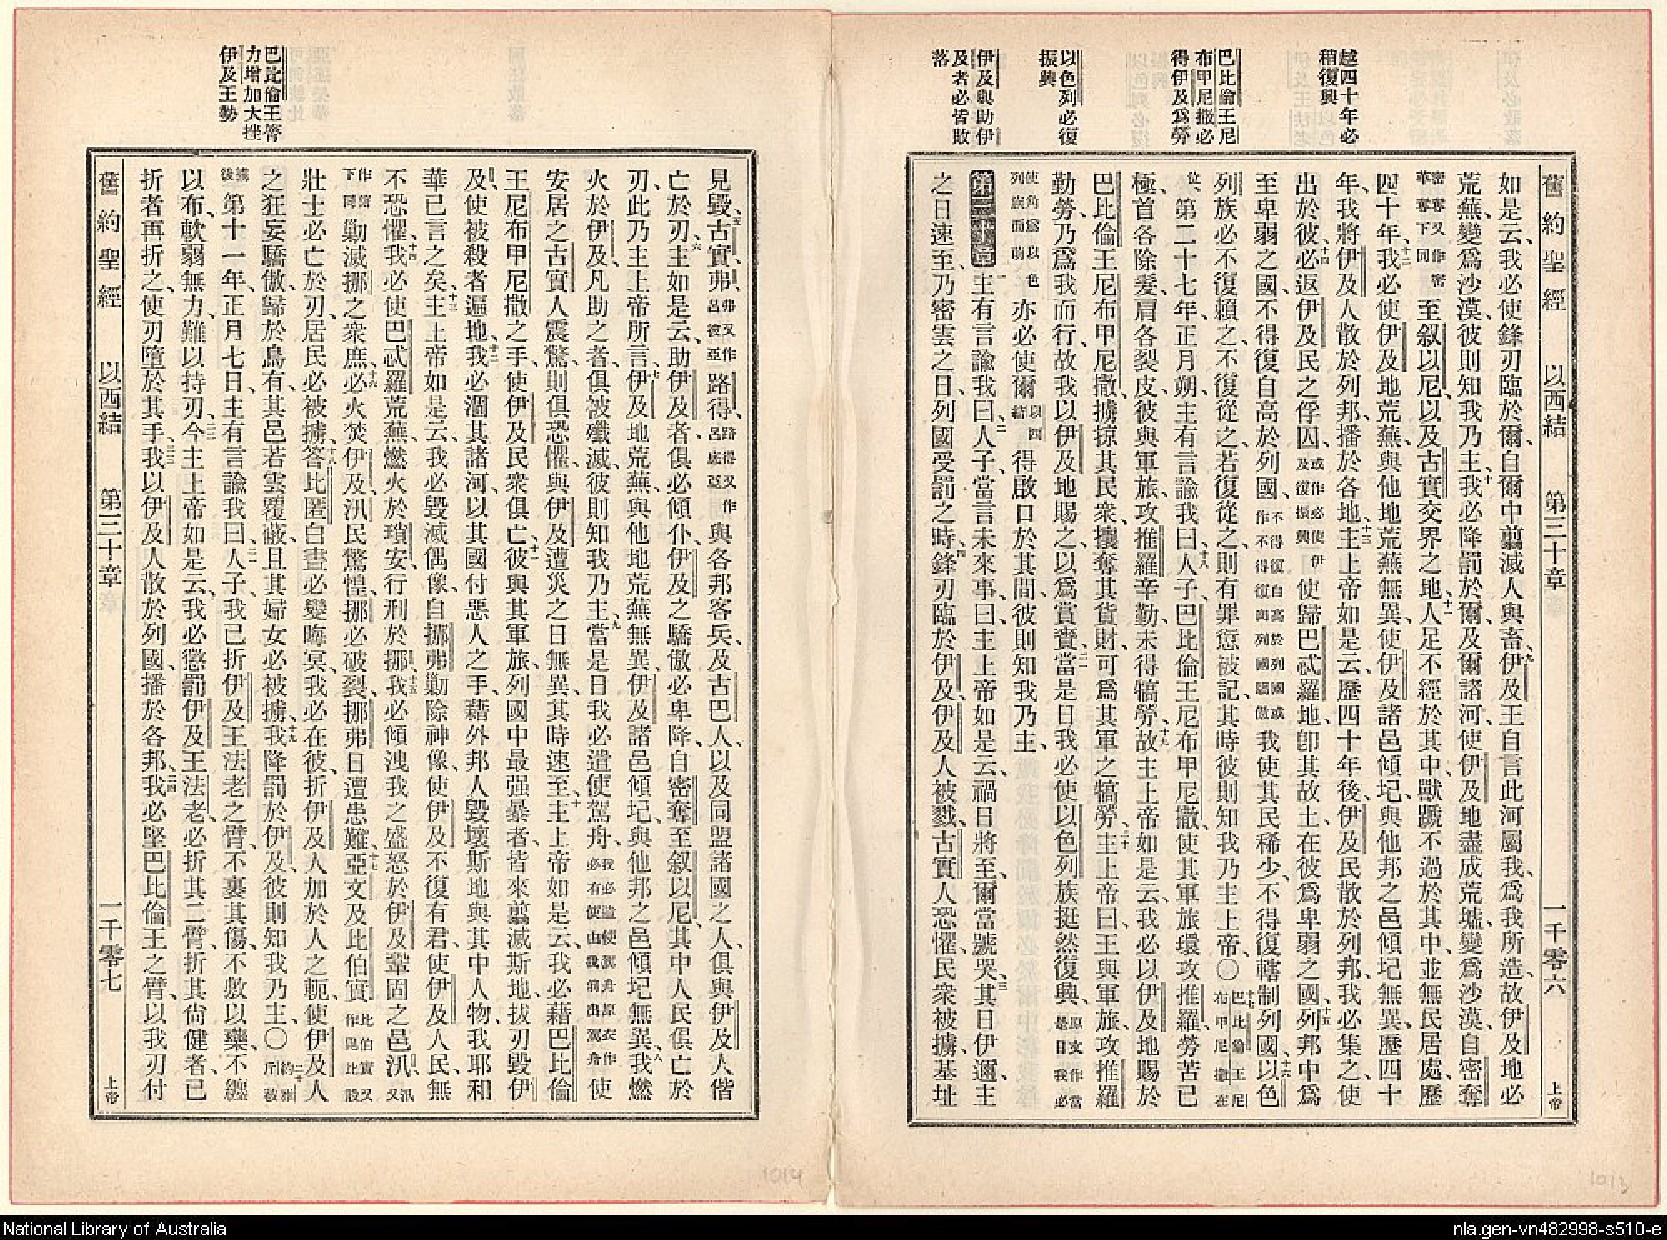 越四十年必
稍復興
巴比倫王尼
布甲尼撒必
得伊及爲勞
以色列必復
振興
伊及與助伊
及者必皆敗
落
舊約聖經 以西結 第三十章 一千零六 上帝
如是云、我必使鋒刃臨於爾、自爾中翦滅人與畜、伊及王自言此河屬我、爲我所造、故伊及地必
荒蕪、變爲沙漠、彼則知我乃主、我必降罰於爾、及爾諸河、使伊及地盡成荒墟、變爲沙漠、自密奪
至敘以尼、以及古實交界之地、人足不經於其中、獸蹶不過於其中、並無民居處、歷
四十年、我必使伊及地荒蕪、與他地荒蕪無異、使伊及諸邑傾圮、與他邦之邑傾圮無異、歷四十
年、我將伊及人散於列邦、播於各地、主上帝如是云、歷四十年後、伊及民散於列邦、我必集之、使
出於彼、必返伊及民之俘囚、使歸巴忒羅地、卽其故土、在彼爲卑弱之國、列邦中爲
至卑弱之國、不得復自高於列國、我使其民稀少、不得復轄制列國、以色
列族必不復賴之、不復從之、若復從之、則有罪愆被記、其時彼則知我乃主上帝、〇
第二十七年正月朔、主有言諭我曰、人子、巴比倫王尼布甲尼撒、使其軍旅環攻推羅、勞苦已
極、首各除髮、肩各裂皮、彼與軍旅、攻推羅辛勤、未得犒勞、故主上帝如是云、我必以伊及地賜於
巴比倫王尼布甲尼撒、擄掠其民衆、攘奪其貨財、可爲其軍之犒勞、主上帝曰、王與軍旅、攻推羅
勤勞、乃爲我而行、故我以伊及地賜之、以爲賞賚、當是日我必使以色列族挺然復興、
亦必使爾得啟口於其間、彼則知我乃主、
第三十章 主有言諭我曰、人子、當言未來事、曰、主上帝如是云、禍日將至、爾當號哭、其日伊邇、主
之日速至、乃密雲之日、列國受罰之時、鋒刃臨於伊及、伊及人被戮、古實人恐懼、民衆被擄、基址
巴比倫王膂
力增加大挫
伊及王勢
見毀、古實、弗、路得、與各邦客兵、及古巴人、以及同盟諸國之人、俱與伊及人偕
亡於刃、主如是云、助伊及者、俱必傾仆、伊及之驕傲必卑降、自密奪至敘以尼、其中人民俱亡於
刃、此乃主上帝所言、伊及地荒蕪、與他地荒蕪無異、伊及諸邑傾圮、與他邦之邑傾圮無異、我燃
火於伊及、凡助之者、俱被殲滅、彼則知我乃主、當是日我必遣使駕舟、使
安居之古實人震驚、則俱恐懼、與伊及遭災之日無異、其時速至、主上帝如是云、我必藉巴比倫
王尼布甲尼撒之手、使伊及民衆俱亡、彼與其軍旅、列國中最强暴者、皆來翦滅斯地、拔刃毀伊
及、使被殺者遍地、我必涸其諸河、以其國付惡人之手、藉外邦人毀壞斯地與其中人物、我耶和
華已言之矣、主上帝如是云、我必毀滅偶像、自挪弗勦除神像、使伊及不復有君、使伊及人民無
不恐懼、我必使巴忒羅荒蕪、燃火於瑣安、行刑於挪、我必傾洩我之盛怒於伊及鞏固之邑汛、
勦滅挪之衆庶、必火焚伊及、汛民驚惶、挪必破裂、挪弗日遭患難、亞文及比伯實
壯士必亡於刃、居民必被擄、答比匿自晝必變晦冥、我必在彼折伊及人加於人之軛、使伊及人
之狂妄驕傲、歸於烏有、其邑若雲覆蔽、且其婦女必被擄、我降罰於伊及、彼則知我乃主、〇
第十一年正月七日、主有言諭我曰、人子、我已折伊及王法老之臂、不裹其傷、不敷以藥、不纏
以布、軟弱無力、難以持刃、今主上帝如是云、我必懲罰伊及王法老、必折其二臂、折其尚健者、已
折者再折之、使刃墮於其手、我以伊及人散於列國、播於各邦、我必堅巴比倫王之臂、以我刃付
舊約聖經 以西結 第三十章 一千零七 上帝
1014
1013
National Library of Australia
nla.gen-vn482998-s510-e